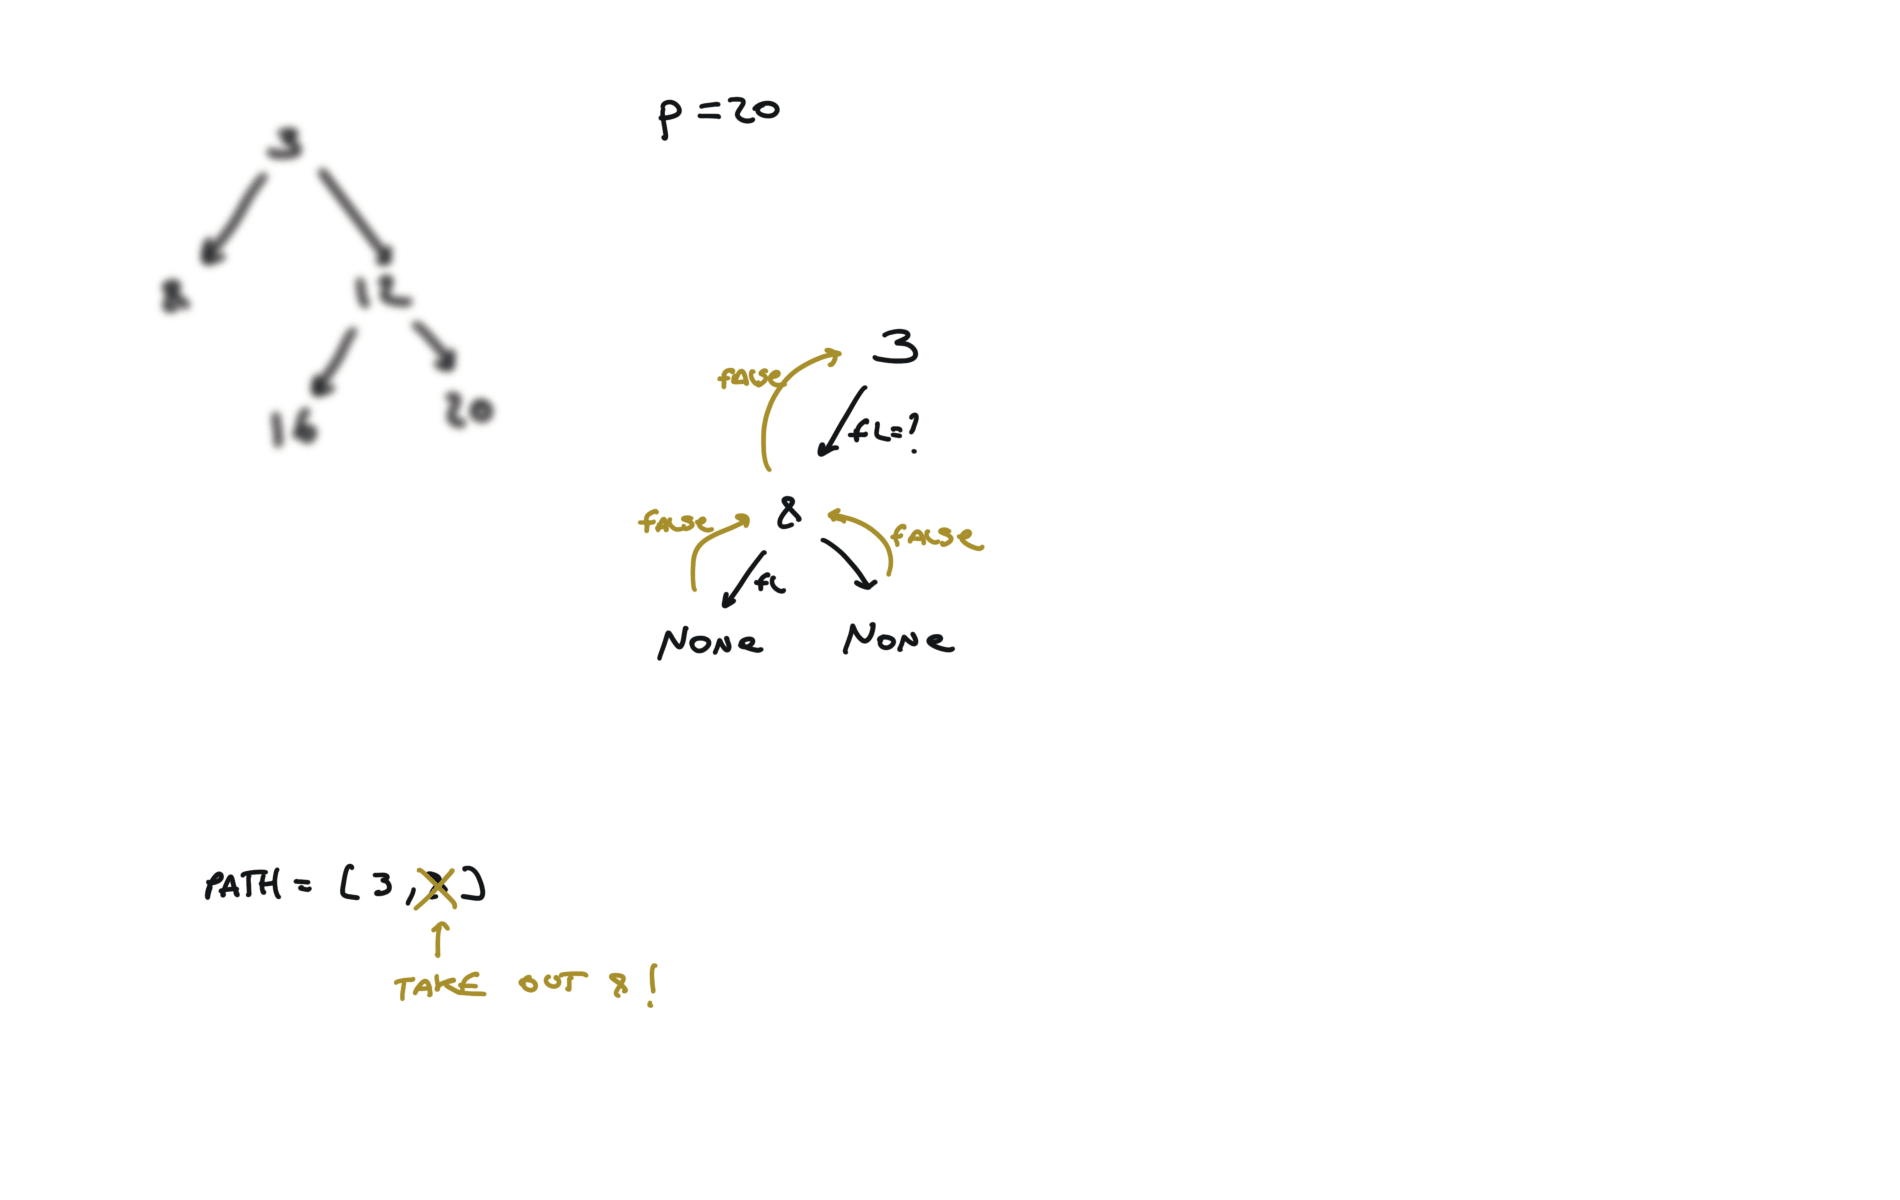 p = 20
3
8
12
16
20
3
false
fL=?
8
false
false
fL
None
None
PATH = [3, 8]
TAKE OUT 8!